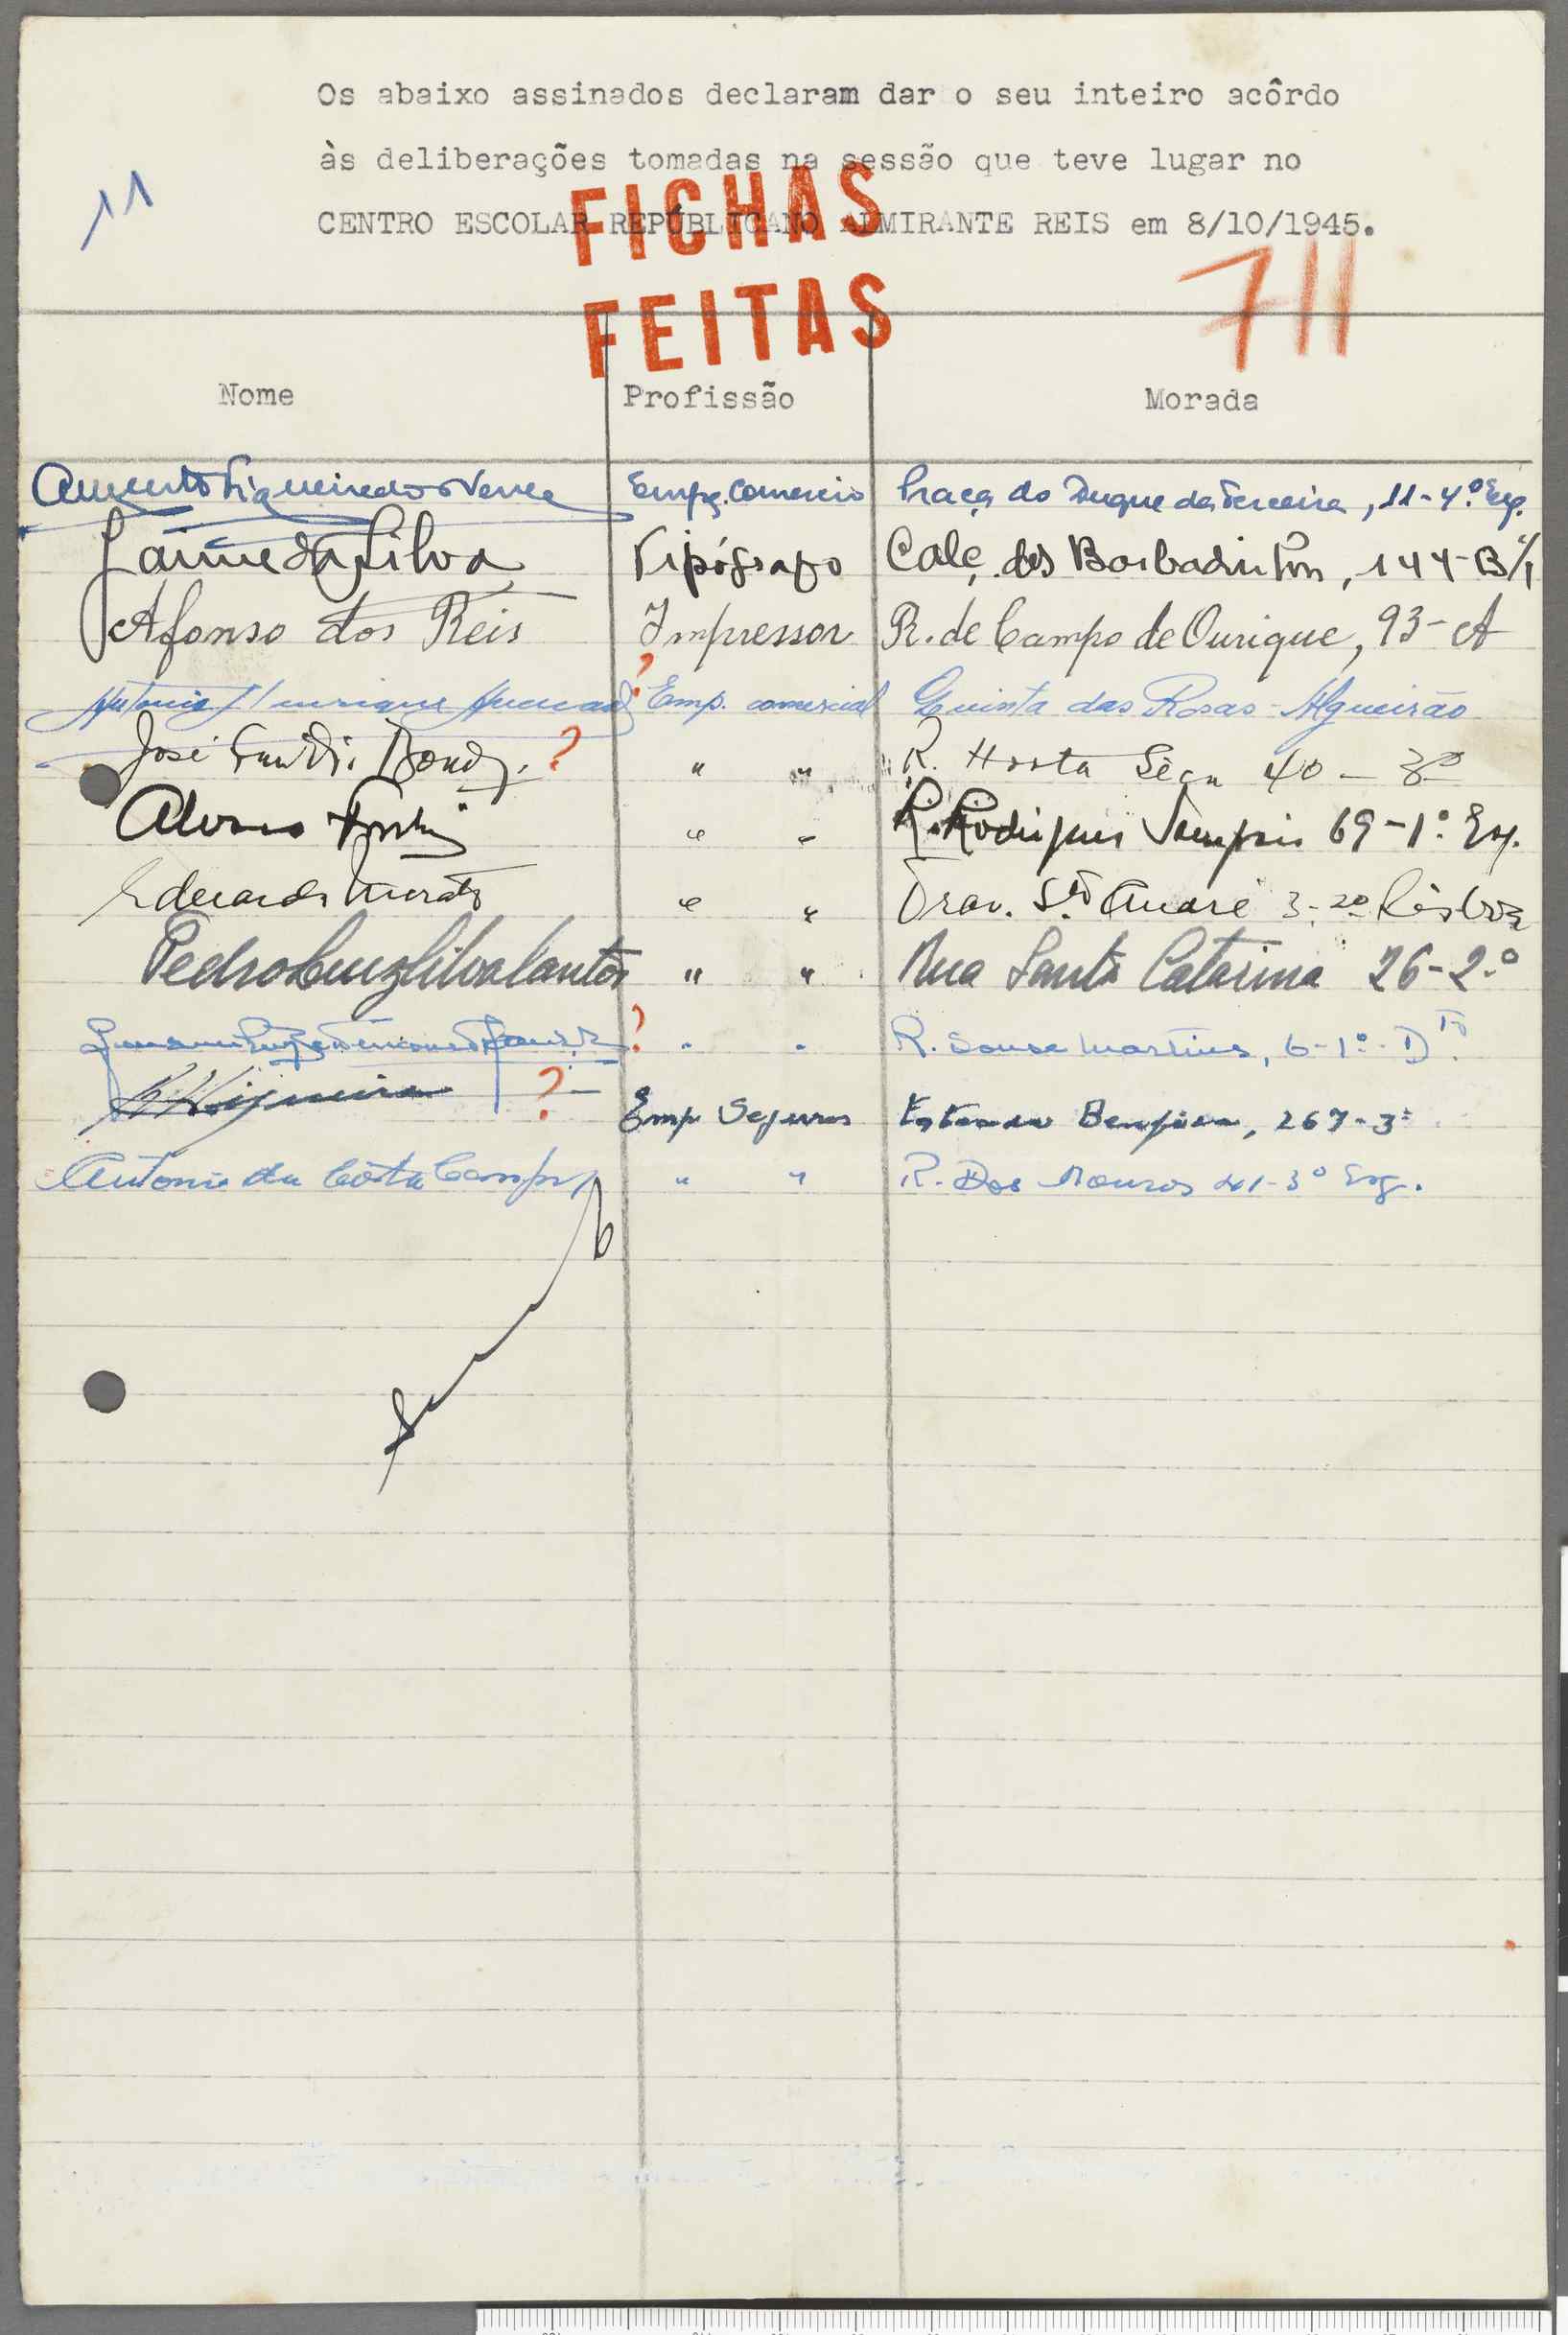 Os abaixo assinados declaram dar o seu inteiro acôrdo
às deliberações tomadas na sessão que teve lugar no
11
CENTRO ESCOLAR REPÚBLICANO ALMIRANTE REIS em 8/10/1945.
FICHAS
FEITAS
711
Nome Profissão Morada
Augusto Figueiredo Empg. Comercio Praça do Duque da Terceira, 11-4.º Esq.
Jaime da Silva Tipógrafo Calç. dos Barbadinhos, 144-B
Afonso dos Reis Impressor R. de Campo de Ourique, 93-A
Antonio Henrique ? Emp. comercial Quinta das Rosas - Algueirão
José ? " " R. Horta Sêca 40 - 3º
Alvaro " " R. Rodrigues Sampaio 69-1º Esq.
Eduardo " " Trav. Sto André 3-2º Lisboa
Pedro Cruz Silva Santos " " Rua Santa Catarina 26-2.º
? " " R. Sousa Martins, 6-1º-Dto.
? Emp Seguros Estrada Benfica, 267-3º
Antonio da Costa Campos " " R. Dos Mouros 41-3º Esq.